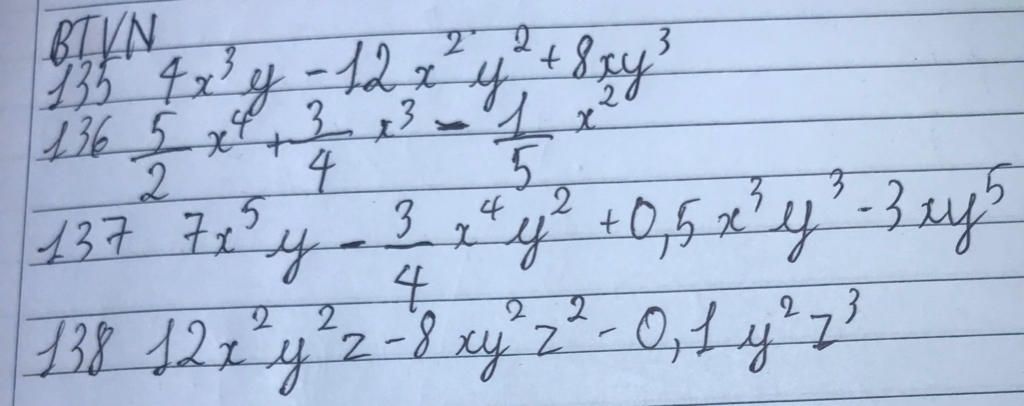 BTVN
135 4x³y - 12x²y² + 8xy³
136 5/2 x⁴ + 3/4 x³ - 1/5 x²
137 7x⁵y - 3/4 x⁴y² + 0,5x³y³ - 3xy⁵
138 12x²y²z - 8xy²z² - 0,1y²z³